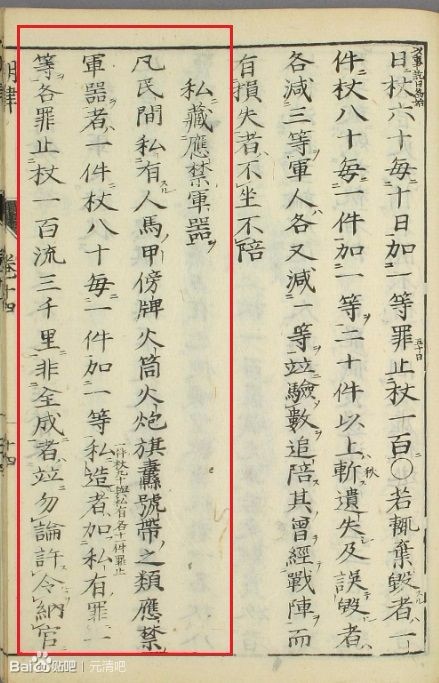 日杖六十每十日加一等罪止杖一百〇若輒棄毀者一
五十日
件杖八十每一件加一等二十件以上斬遺失及誤毀者
各減三等軍人各又減一等竝驗數追陪其曾經戰陣而
有損失者不坐不陪
私藏應禁軍器
凡民間私有人馬甲傍牌火筒火炮旗纛號帶之類應禁
軍器者一件杖八十每一件加一等私造者加私有罪一
一件杖九十與私有各十一件罪止
等各罪止杖一百流三千里非全成者竝勿論許令納官
明律
卷十四
十四
Baidu贴吧 | 元清吧